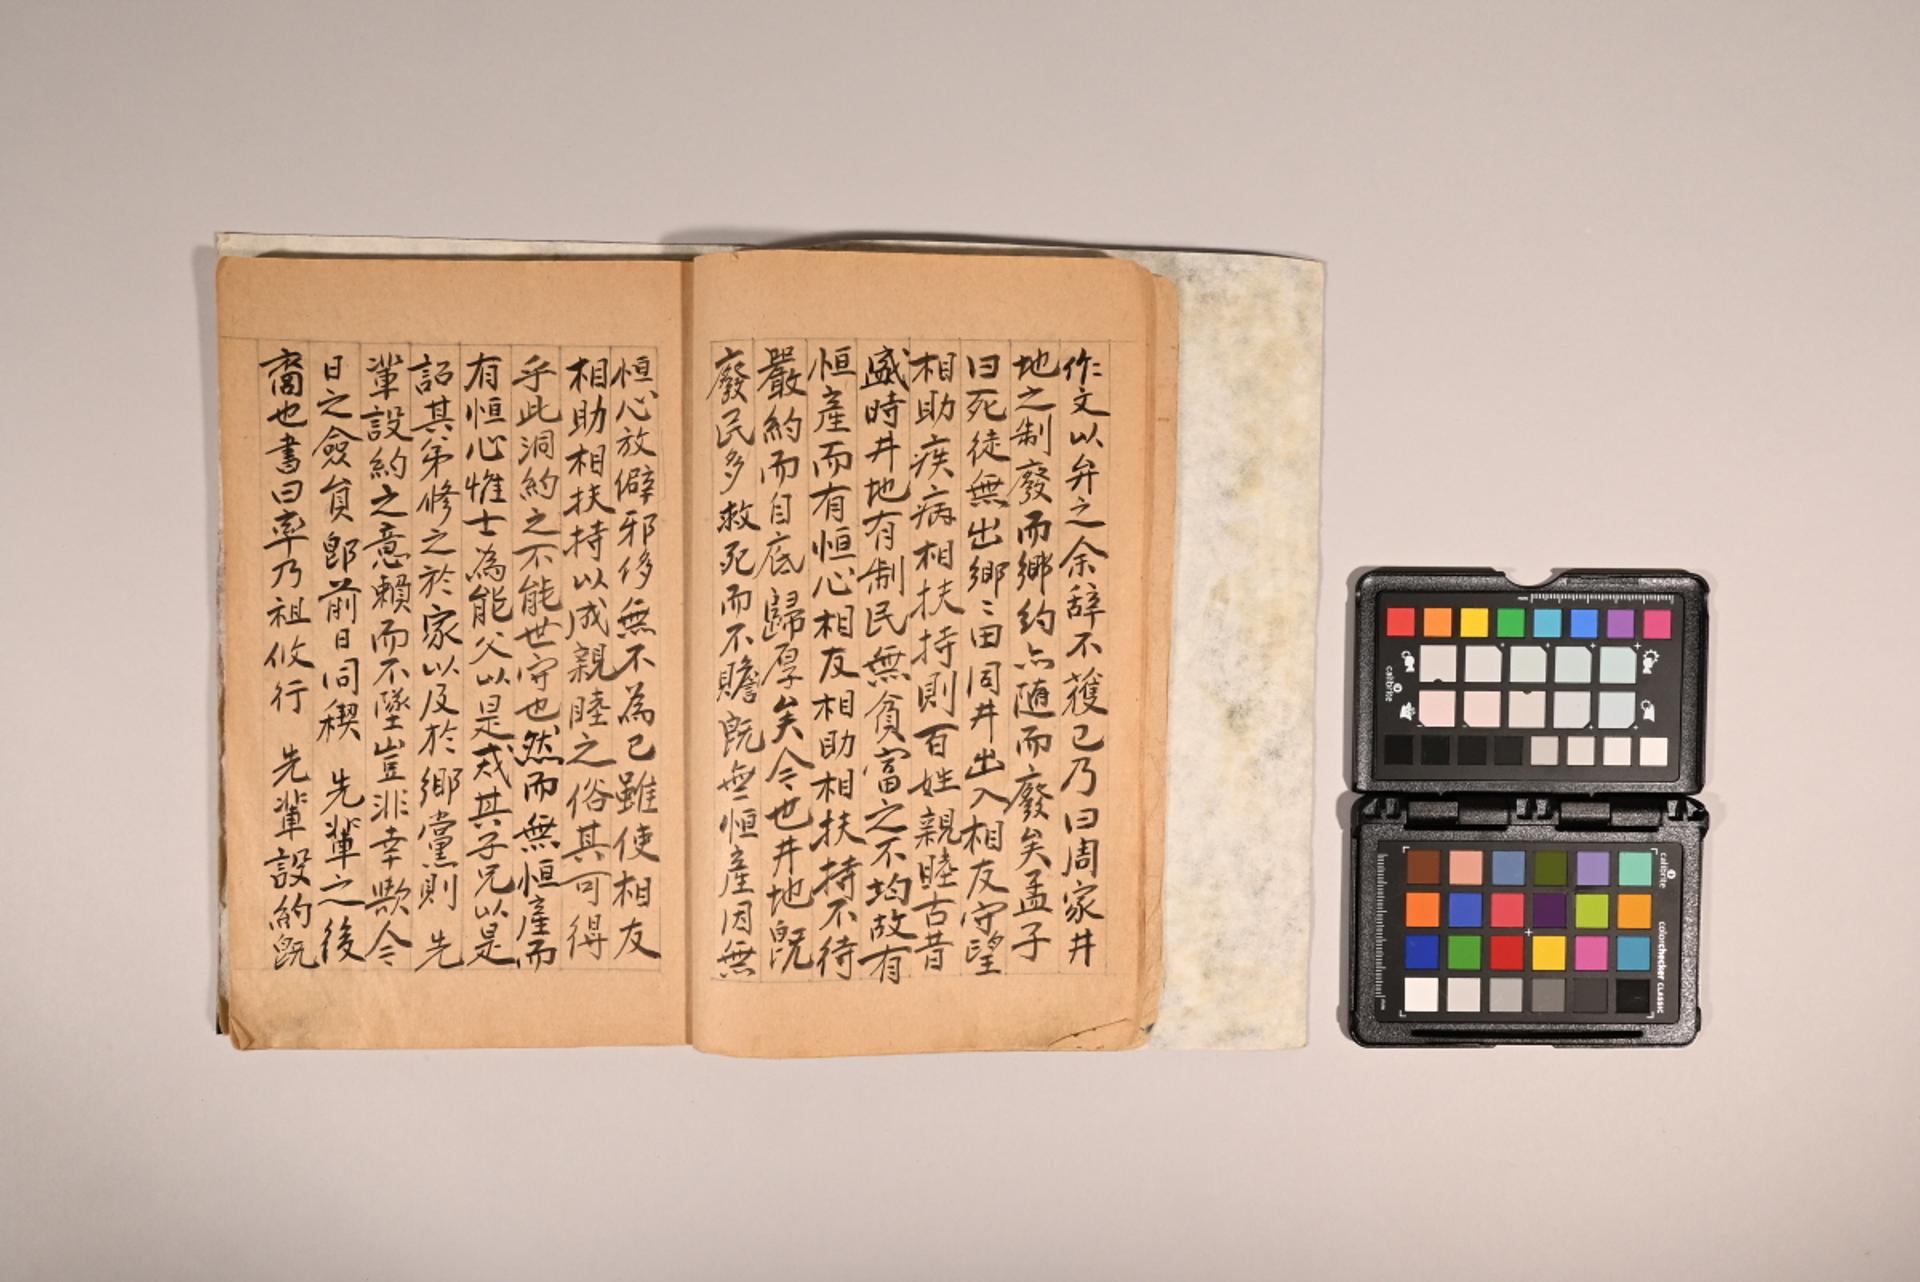 作文以弁之余辞不獲已乃曰周家井
地之制廢而鄉約亦随而廢矣孟子
曰死徒無出鄉〻田同井出入相友守望
相助疾病相扶持則百姓親睦古昔
盛時井地有制民無貧富之不均故有
恒産而有恒心相友相助相扶持不待
嚴約而自底歸厚矣今也井地旣
廢民多救死而不贍旣無恒産因無
恒心放僻邪侈無不為已雖使相友
相助相扶持以成親睦之俗其可得
乎此洞約之不能世守也然而無恒産而
有恒心惟士為能父以是戒其子兄以是
詔其弟修之於家以及於鄉黨則 先
輩設約之意賴而不墜豈非幸歟今
日之僉員卽前日同稧 先輩之後
裔也書曰率乃祖攸行 先輩設約旣
calibrite
colorchecker CLASSIC
calibrite
mm